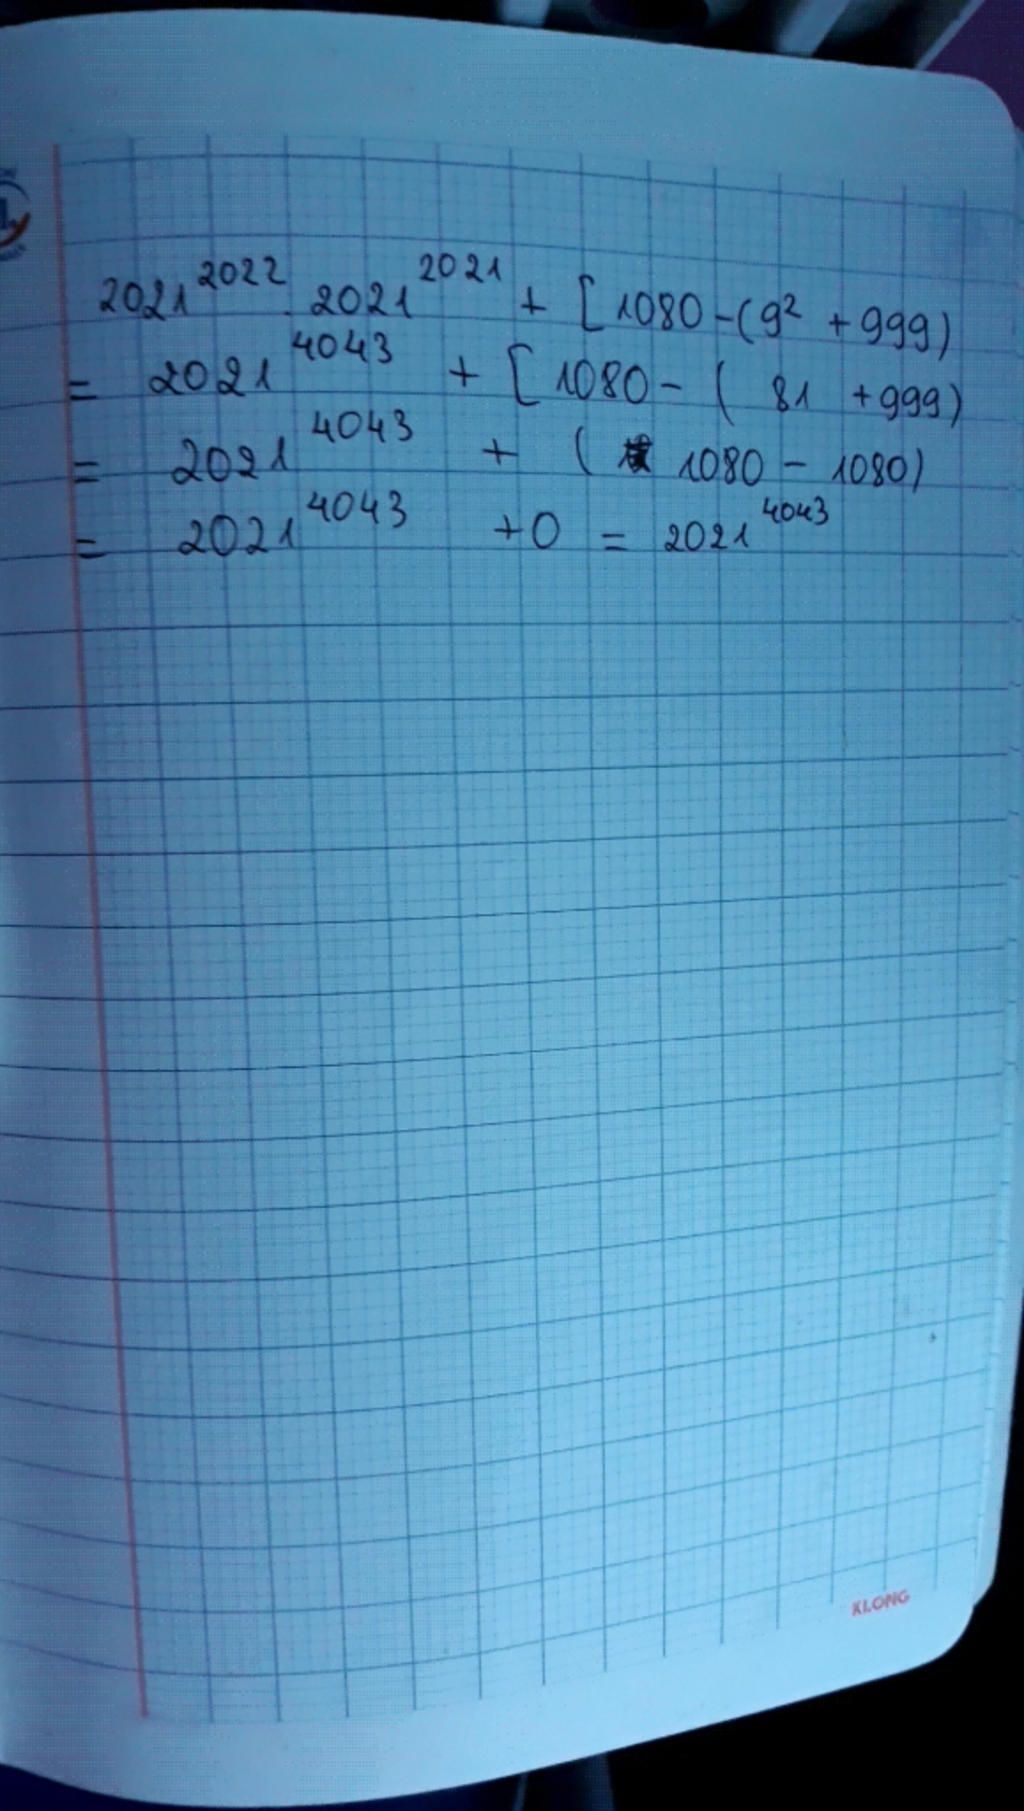 2021²⁰²² . 2021²⁰²¹ + [1080 - (9² + 999)
= 2021⁴⁰⁴³ + [1080 - ( 81 + 999)
= 2021⁴⁰⁴³ + ( 1080 - 1080)
= 2021⁴⁰⁴³ + 0 = 2021⁴⁰⁴³
KLONG